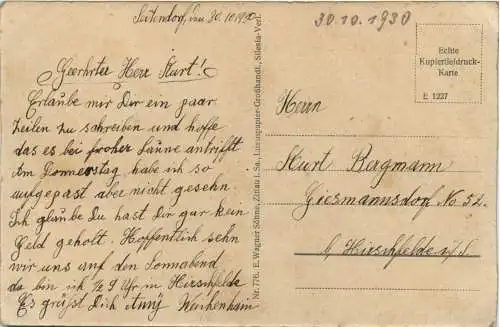 Seitendorf, den 30.10.1930
30.10.1930
Geerhrter Herr Kurt!
Erlaube mir Dir ein paar
Zeilen zu schreiben und hoffe
das es bei froher Laune antrifft
Am Donnerstag habe ich so
aufgepast aber nicht gesehn
Ich glaube Du hast Dir gar kein
Geld geholt. Hoffentlich sehn
wir uns auf den Sonnabend
da bin ich ½ 9 Uhr in Hirschfelde
Es grüßt Dich Anny
Nr. 776. E. Wagner Söhne, Zittau i. Sa., Luxuspapier-Großhandl., Silesia-Verl.
Echte
Kupfertiefdruck-
Karte
E 1237
Herrn
Kurt Bergmann
Giesmannsdorf No 52.
b/ Hirschfelde i/S.